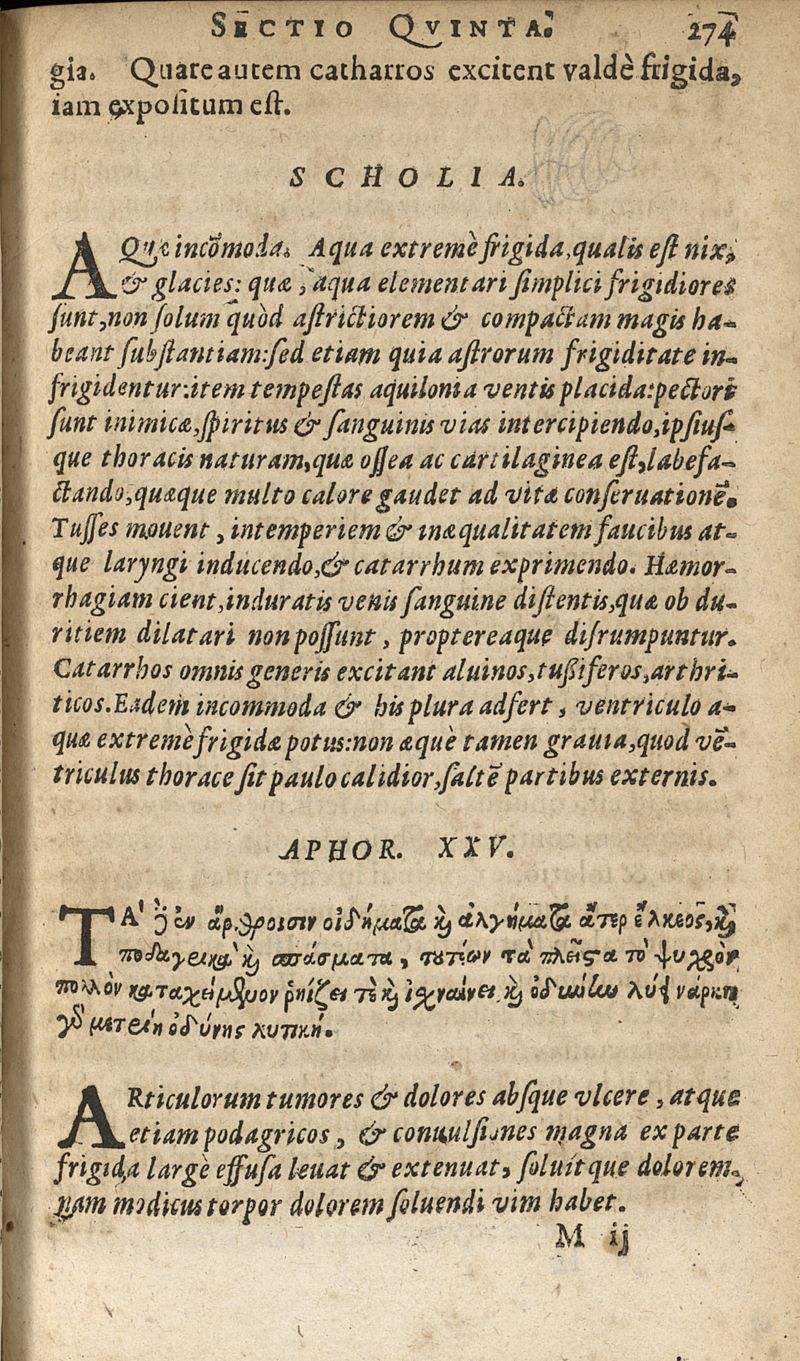 SECTIO QVINTA. 274
gia. Quare autem catharros excitent valdè frigida,
iam expositum est.
SCHOLIA.
AQuæ incōmoda. Aqua extremè frigida, qualis est nix,
& glacies: quæ, aqua elementari simplici frigidiores
sunt, non solum quòd astrictiorem & compactam magis ha-
beant substantiam: sed etiam quia astrorum frigiditate in-
frigidentur: item tempestas aquilonia ventis placida: pectori
sunt inimicæ, spiritus & sanguinis vias intercipiendo, ipsius-
que thoracis naturam, quæ ossea ac cartilaginea est, labefa-
ctando, quæque multo calore gaudet ad vitæ conseruationē.
Tusses mouent, intemperiem & inæqualitatem faucibus at-
que laryngi inducendo, & catarrhum exprimendo. Hæmor-
rhagiam cient, induratis venis sanguine distentis, quæ ob du-
ritiem dilatari non possunt, proptereaque disrumpuntur.
Catarrhos omnis generis excitant aluinos, tussiferos, arthri-
ticos. Eadem incommoda & his plura adfert, ventriculo a-
quæ extremè frigidæ potus: non æquè tamen grauia, quod vē-
triculus thorace sit paulo calidior, saltē partibus externis.
APHOR. XXV.
ΤΑ' δ ἐν ἄρθροισιν οἰδήματα καὶ ἀλγήματα ἄτερ ἕλκεος, καὶ
ποδαγρικὰ καὶ σπάσματα, τουτέων τὰ πλεῖστα τὸ ψυχρὸν
πολλὸν καταχεόμενον ῥηίζει τε καὶ ἰχναίνει καὶ ὀδύνην λύει νάρκη
γὰρ μετρίη ὀδύνης λυτική.
ARticulorum tumores & dolores absque vlcere, atque
etiam podagricos, & conuulsiones magna ex parte
frigida largè effusa leuat & extenuat, soluítque dolorem,
nam modicus torpor dolorem soluendi vim habet.
M ij